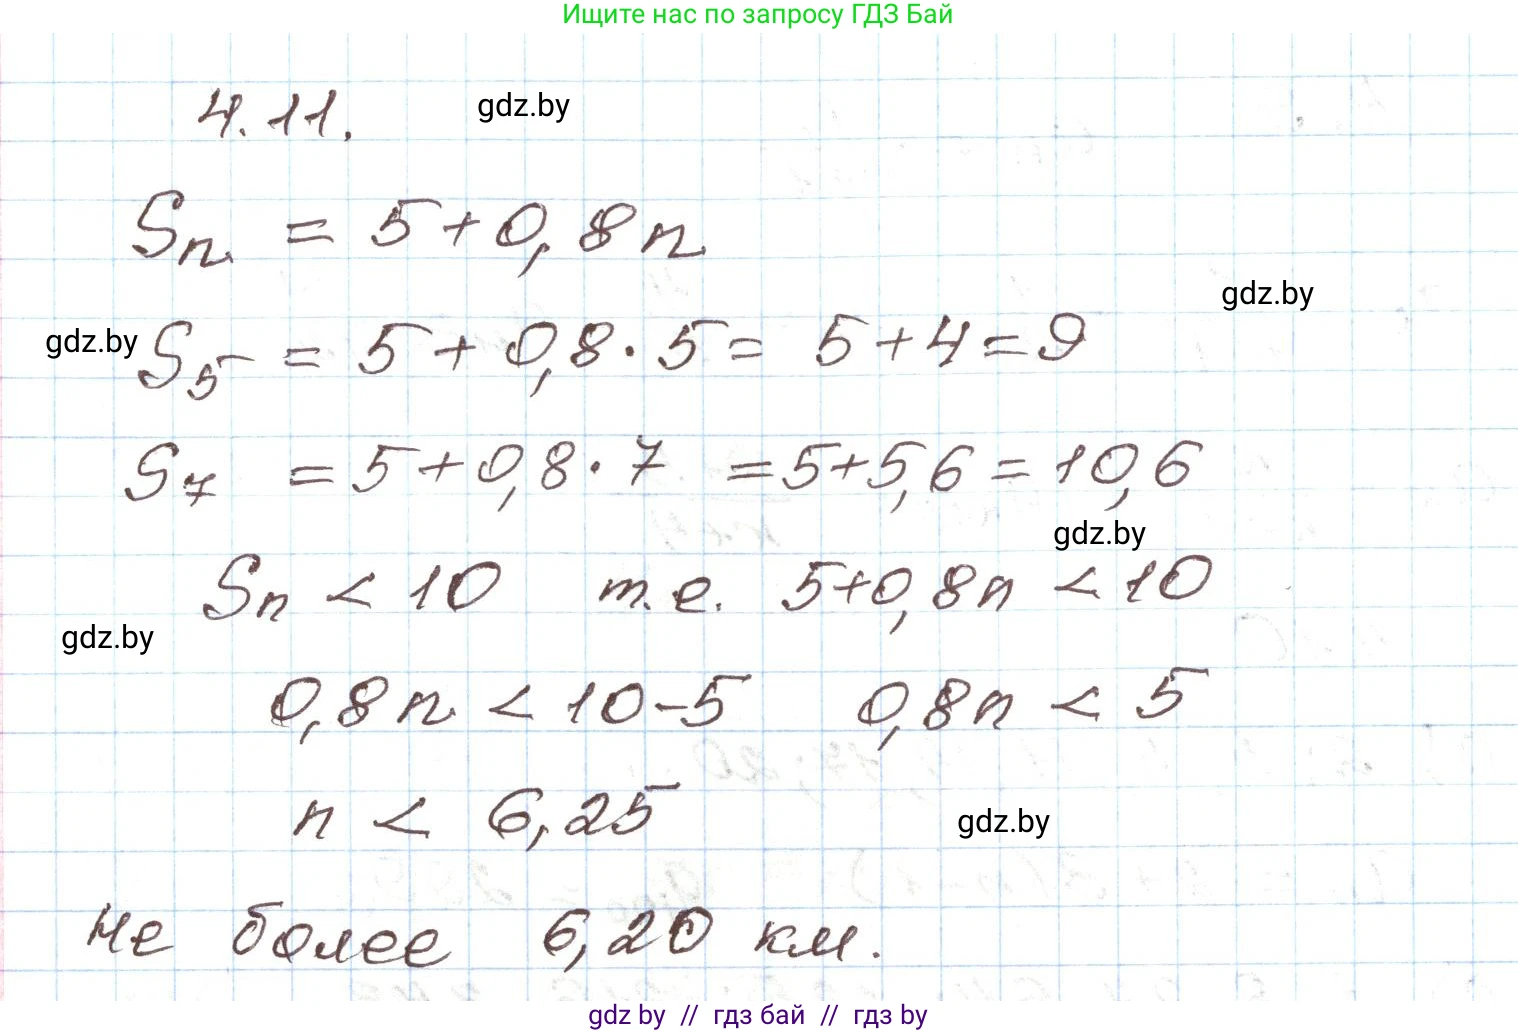 Ищите нас по запросу ГДЗ Бай
4.11. gdz.by
Sₙ = 5 + 0,8n
gdz.by
gdz.by
S₅ = 5 + 0,8 · 5 = 5 + 4 = 9
S₇ = 5 + 0,8 · 7 = 5 + 5,6 = 10,6
gdz.by
Sₙ < 10 т.е. 5 + 0,8n < 10
gdz.by
0,8n < 10 - 5 0,8n < 5
n < 6,25 gdz.by
не более 6,20 км.
gdz by // гдз бай // гдз by